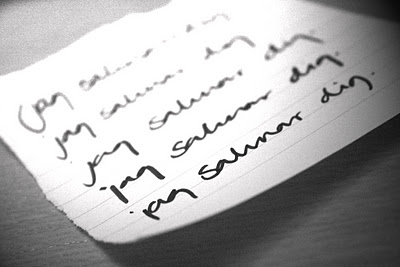 jag saknar dig
jag saknar dig
jag saknar dig.
jag saknar dig.
jag saknar dig.